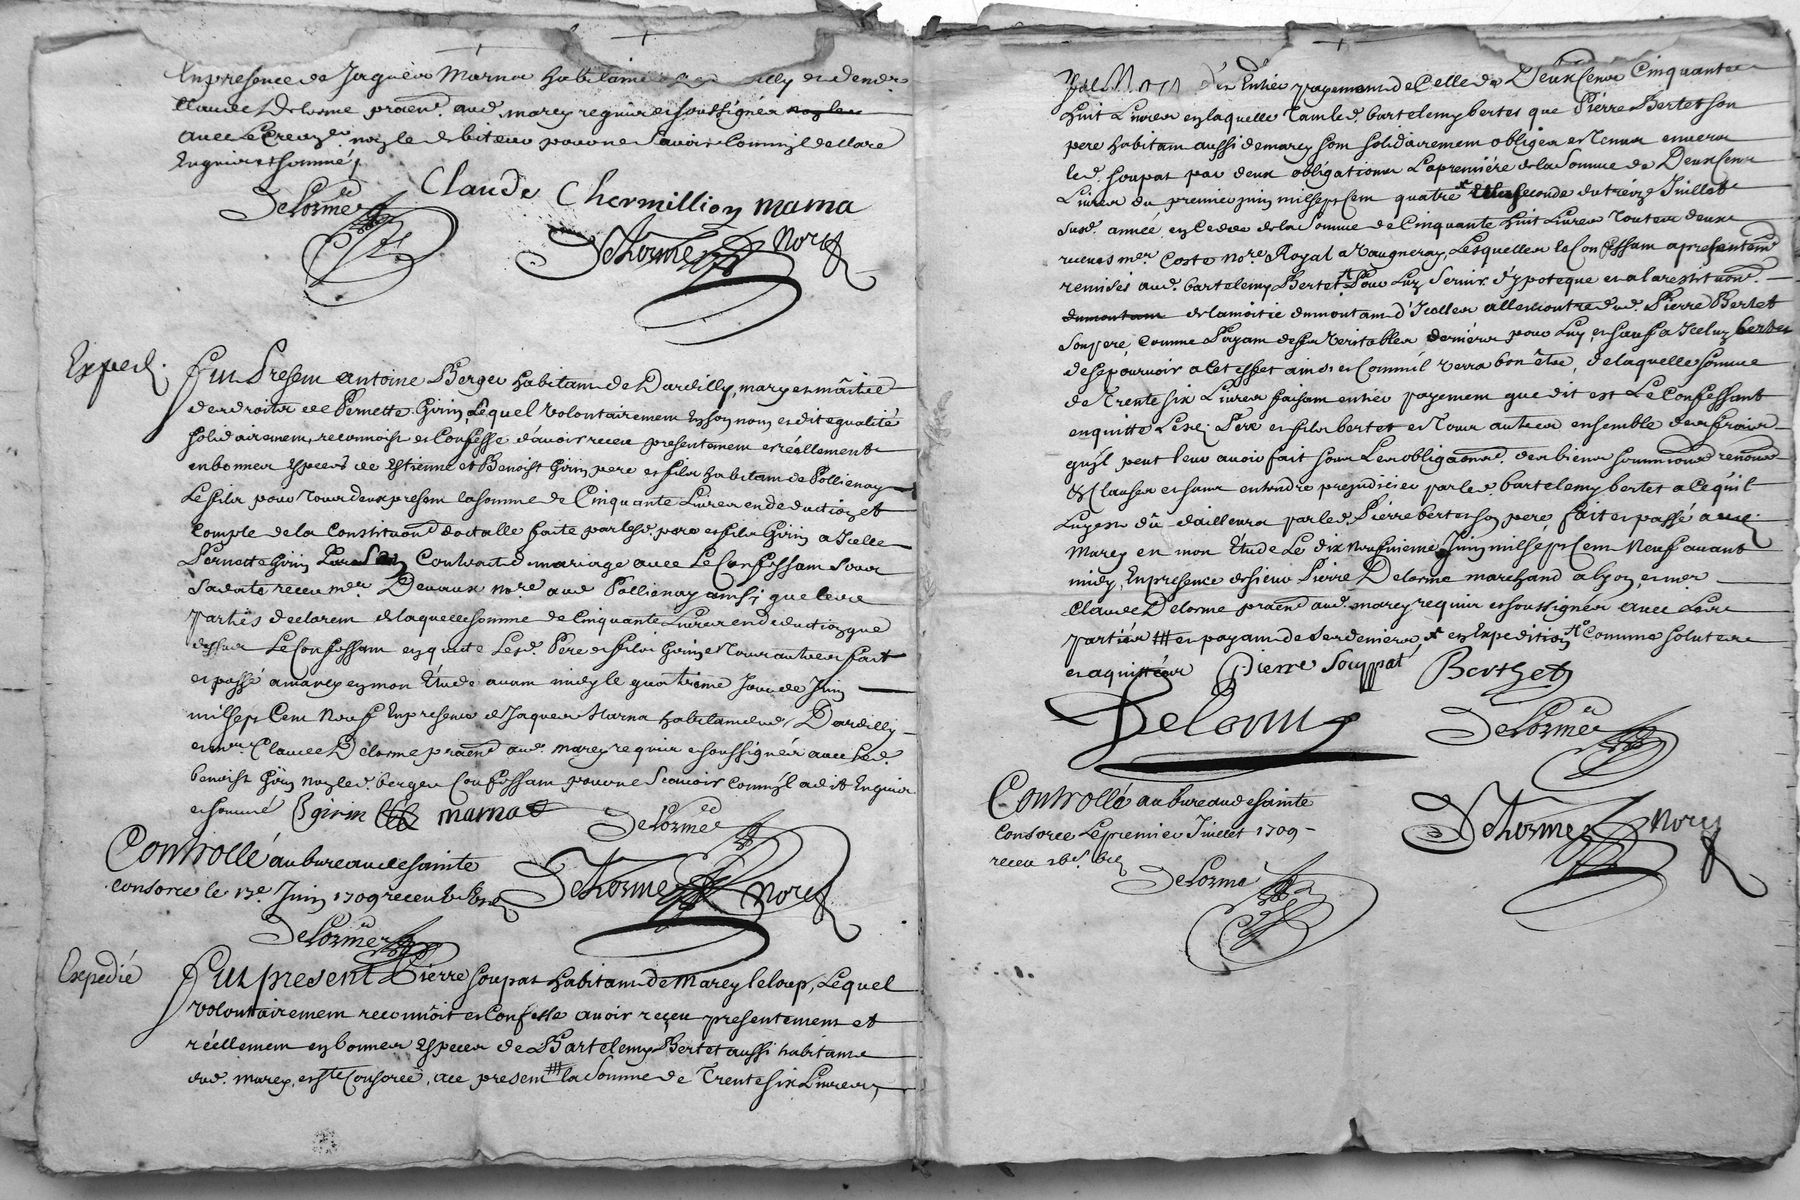 En presence de Jaques Marna habitant illy et de me.
Claude Delorme praen. aud. marcy requis et soussignés
avec le creanc.er non le debiteur pour ne sçavoir comm'il declare
Enquis et sommé /.
Delorme
Claude Chermillion marna
Delhorme Nore
Exped.
Fut Present antoine Berger habitant de Dardilly, mary et maître
des droits de Pernette Girin, Lequel volontairement en son nom et dite qualité
solidairement reconnoist et Confesse d'avoir receu presentement et réellement
en bonnes Especes de Estienne et Benoist Girin pere et fils habitant de Pollienay
Le fils pour tous deux present la somme de Cinquante Livres en deduction et
Compte de la Constitution dotalle faite par lesd. pere et fils Girin a Icelle
Pernette Girin Contract de mariage avec Le Confessant sous
sa datte receu me. Devaux no.re aud Pollienay ainsi que les
parties declarent de laquelle somme de Cinquante Livres en deduction que
dessus Le Confessant en quitte Lesd. Pere et fils Girin et tous autres fait
et passé a marcy en mon Etude avant midy le quatrieme Jour de Juin
mil sept Cent Neuf En presence de Jaques Marna habitant dud. Dardilly
et me. Claude Delorme praen. aud. marcy requis et soussignés avec led.
benoist Girin non led. berger Confessant pour ne scavoir comm'il a dit Enquis
et sommé B girin marna
Delorme
Controllé au bureau de sainte
Consorce le 13.e Juin 1709 receu
Delhorme Nore
Delorme
Expedié
Fut present Pierre soupat habitant de Marcy le loup, Lequel
volontairement reconnoit et Confesse avoir reçeu presentement et
réellement en bonnes Especes de Bartelemy Bertet aussi habitant
dud. marcy, et s.te Consorce, ace present la somme de Trente six Livres,
Entier payement de Celle de Deux Cens Cinquante
huit Livres en laquelle tant led. bartelemy bertet que Pierre Bertet son
pere habitant aussi de marcy sont solidairement obligés et tenus envers
led. soupat par deux obligations La premiére de la somme de Deux Cens
Livres du premier juin mil sept Cent quatre seconde du treize Juillet
susd. année, en Cedes de la somme de Cinquante huit Livres toutes deux
receues me. Coste no.re Royal a Vaugneray, Lesquelles le Confessant a presentem.
remises aud. bartelemy Bertet Pour luy servir d'ypoteque et a la restitution
de la moitié du montant d'Icelles allencontre dud. Pierre Bertet
son pere, Comme Payant de ses veritables deniers pour Luy, et sauf a Iceluy bertet
de se pourvoir a cet effet ainsi et Comm'il verra bon être, de laquelle somme
de Trente six Livres faisant entier payement que dit est Le Confessant
en quitte Lesd. Pere et fils bertet et tous autres ensemble des frais
qu'il peut leur avoir fait sous Les obligaons. des biens soumissions renonc.
& Clauses et sans entendre prejudicier par led. bartelemy bertet a ce qu'il
Luy est dû d'ailleurs par led. Pierre bertet son pere, fait et passé aud.
Marcy en mon Etude Le dix neufvieme Juin mil sept Cent Neuf avant
midy, En presence de sieur Pierre Delorme marchand a lyon, et me.
Claude Delorme praen. aud. marcy requis et soussignés avec Les
parties et payant de ses deniers, en Expedition Comme solutere
et aquittéur Pierre Souppat Berthet
Delorme
Delorme
Controllé au bureau de sainte
Consorce Le premier Juillet 1709
receu
Delhorme Nore
Delorme